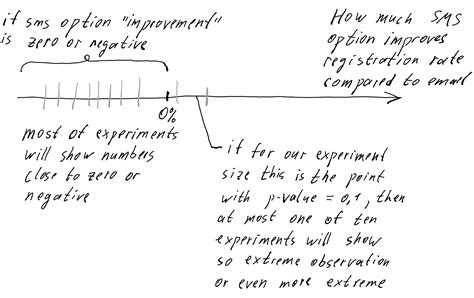 if sms option "improvement"
is zero or negative
How much SMS
option improves
registration rate
compared to email
0%
most of experiments
will show numbers
close to zero or
negative
if for our experiment
size this is the point
with p-value = 0,1, then
at most one of ten
experiments will show
so extreme observation
or even more extreme